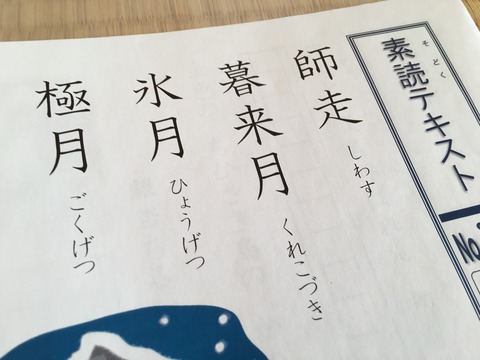 素読テキスト
そどく
No.
師走
しわす
暮来月
くれこづき
氷月
ひょうげつ
極月
ごくげつ